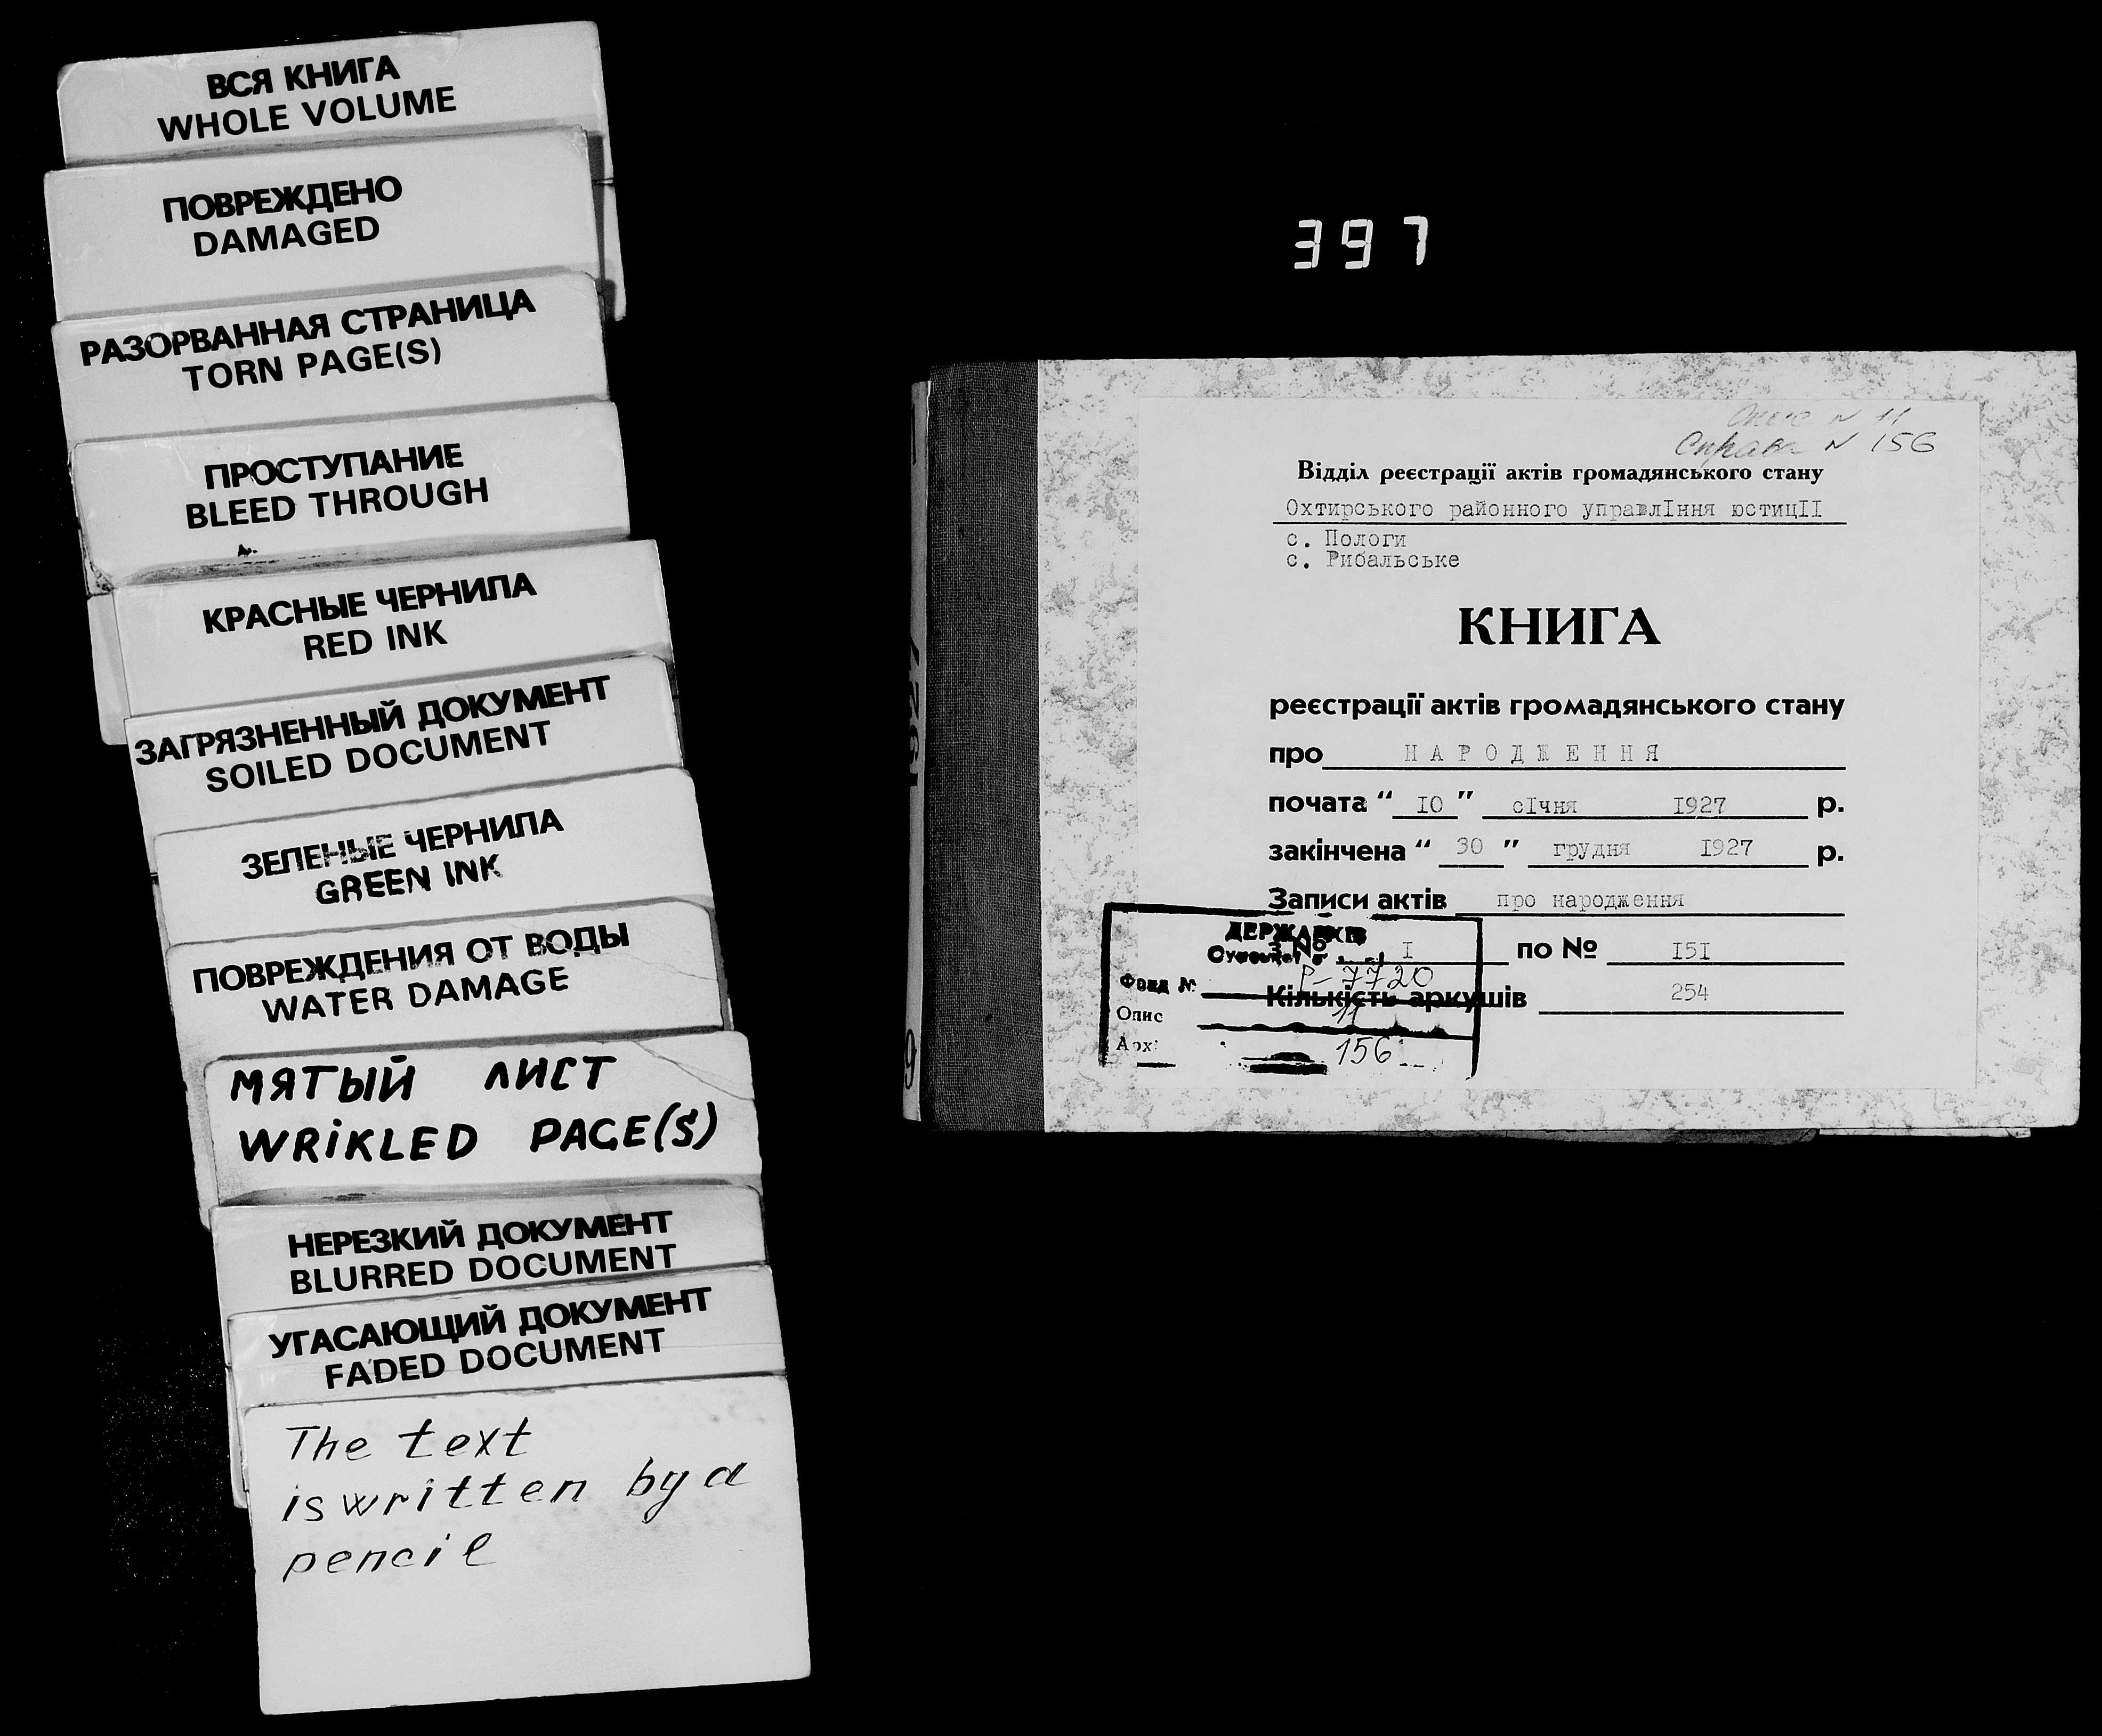 ВСЯ КНИГА
WHOLE VOLUME
ПОВРЕЖДЕНО
DAMAGED
РАЗОРВАННАЯ СТРАНИЦА
TORN PAGE(S)
ПРОСТУПАНИЕ
BLEED THROUGH
КРАСНЫЕ ЧЕРНИЛА
RED INK
ЗАГРЯЗНЕННЫЙ ДОКУМЕНТ
SOILED DOCUMENT
ЗЕЛЕНЫЕ ЧЕРНИЛА
GREEN INK
ПОВРЕЖДЕНИЯ ОТ ВОДЫ
WATER DAMAGE
МЯТЫЙ ЛИСТ
WRIKLED PAGE(S)
НЕРЕЗКИЙ ДОКУМЕНТ
BLURRED DOCUMENT
УГАСАЮЩИЙ ДОКУМЕНТ
FADED DOCUMENT
The text
is written by a
pencil
397
1927
Опис N 11
Справа N 156
Відділ реєстрації актів громадянського стану
Охтирського районного управлІння юстицІІ
с. Пологи
с. Рибальське
КНИГА
реєстрації актів громадянського стану
про НАРОДЖЕННЯ
почата “ IO ” сІчня I927 р.
закінчена “ 30 ” грудня I927 р.
Записи актів про народження
з № I по № I5I
Кількість аркушів 254
ДЕРЖАРХІВ
Фонд № Р-7720
Опис 11
156